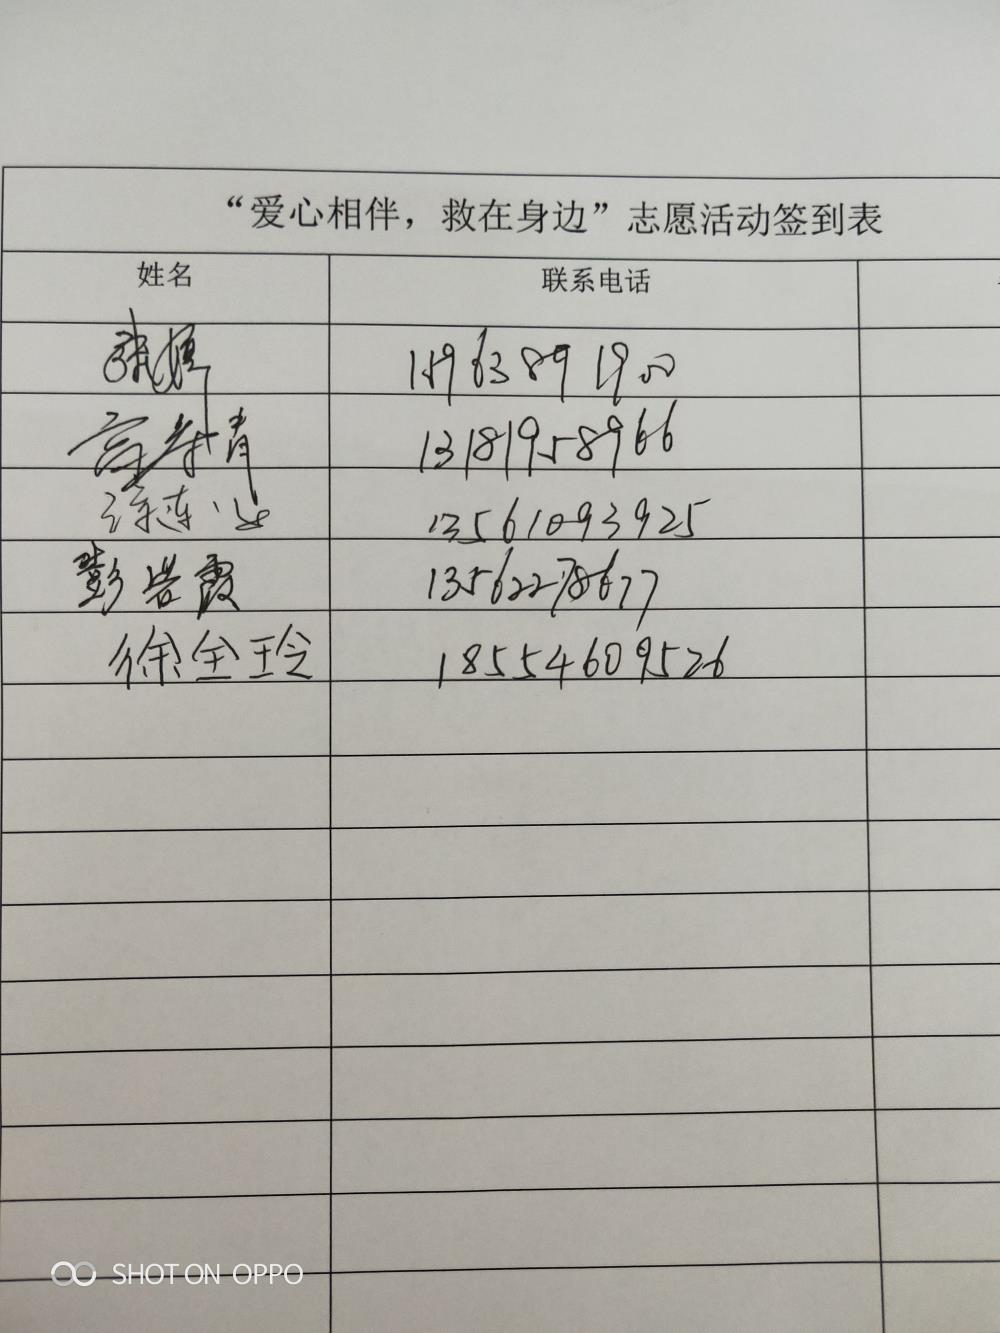 “爱心相伴，救在身边”志愿活动签到表
姓名 联系电话
15963891900
高春青 13819958966
徐莲 13561093925
彭岩霞 13562278677
徐金玲 18554609526
SHOT ON OPPO